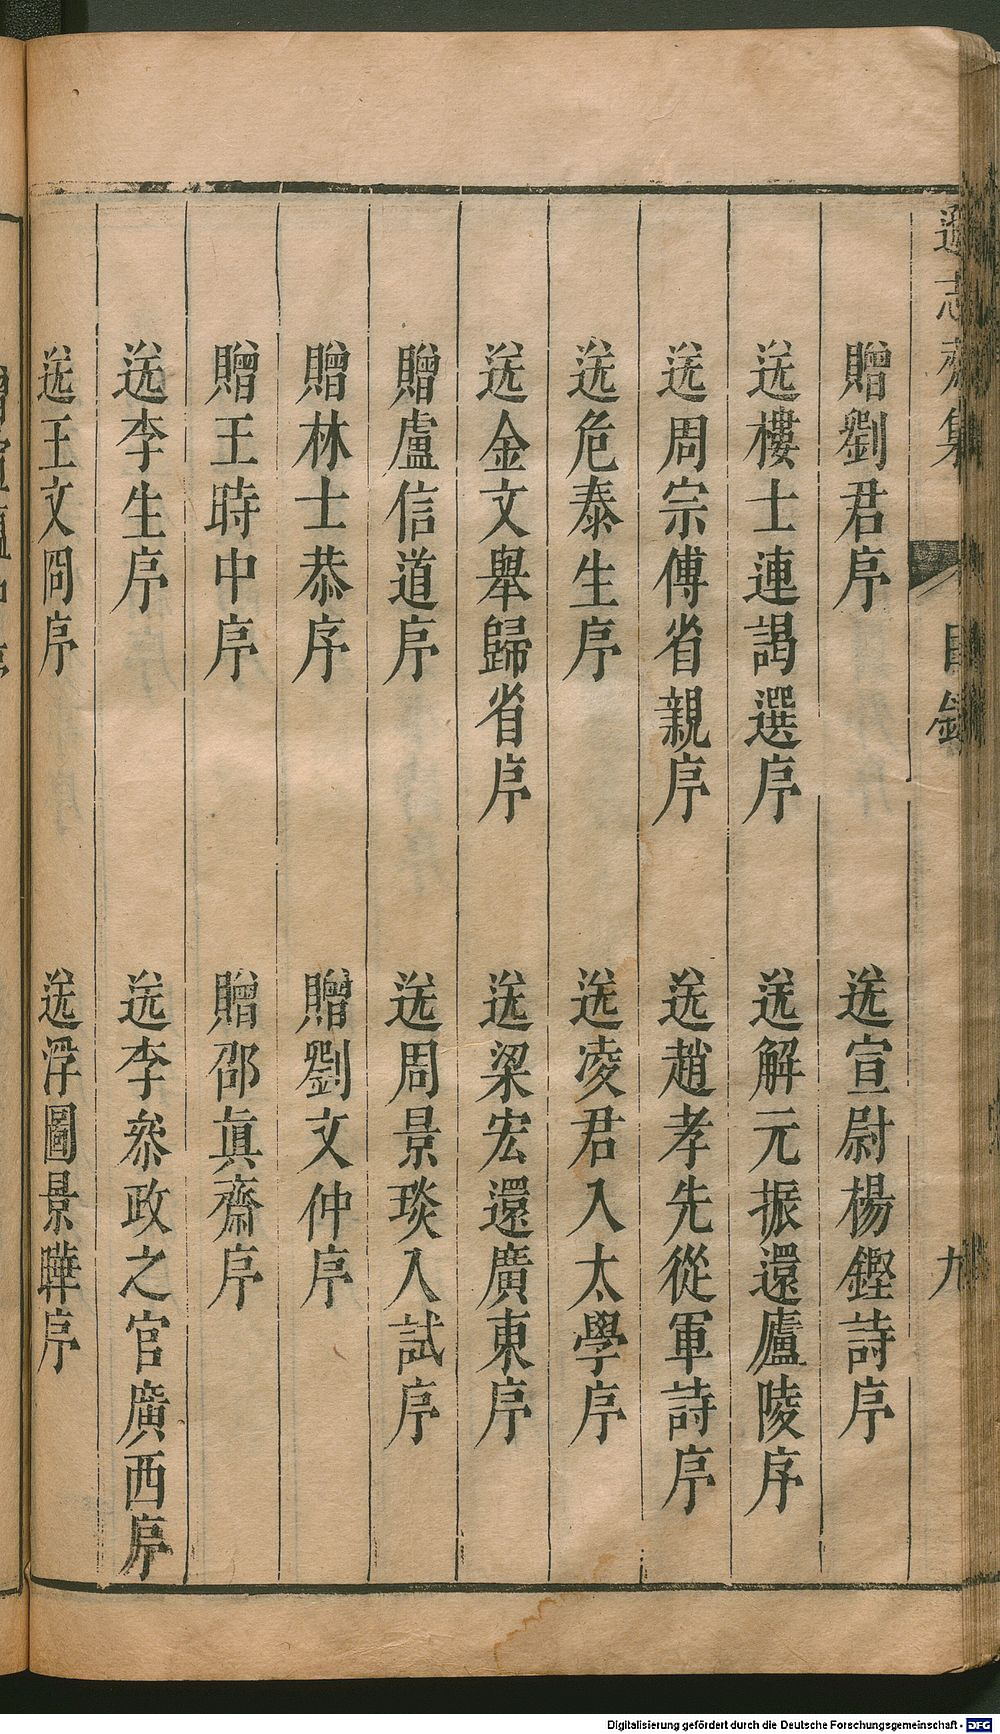 遜志齋集 目錄 九
贈劉君序 送宣尉楊鏗詩序
送樓士連謁選序 送解元振還廬陵序
送周宗傳省親序 送趙孝先從軍詩序
送危泰生序 送凌君入太學序
送金文舉歸省序 送梁宏還廣東序
贈盧信道序 送周景琰入試序
贈林士恭序 贈劉文仲序
贈王時中序 贈邵眞齋序
送李生序 送李叅政之官廣西序
送王文冏序 送浮圖景曄序
Digitalisierung gefördert durch die Deutsche Forschungsgemeinschaft - DFG